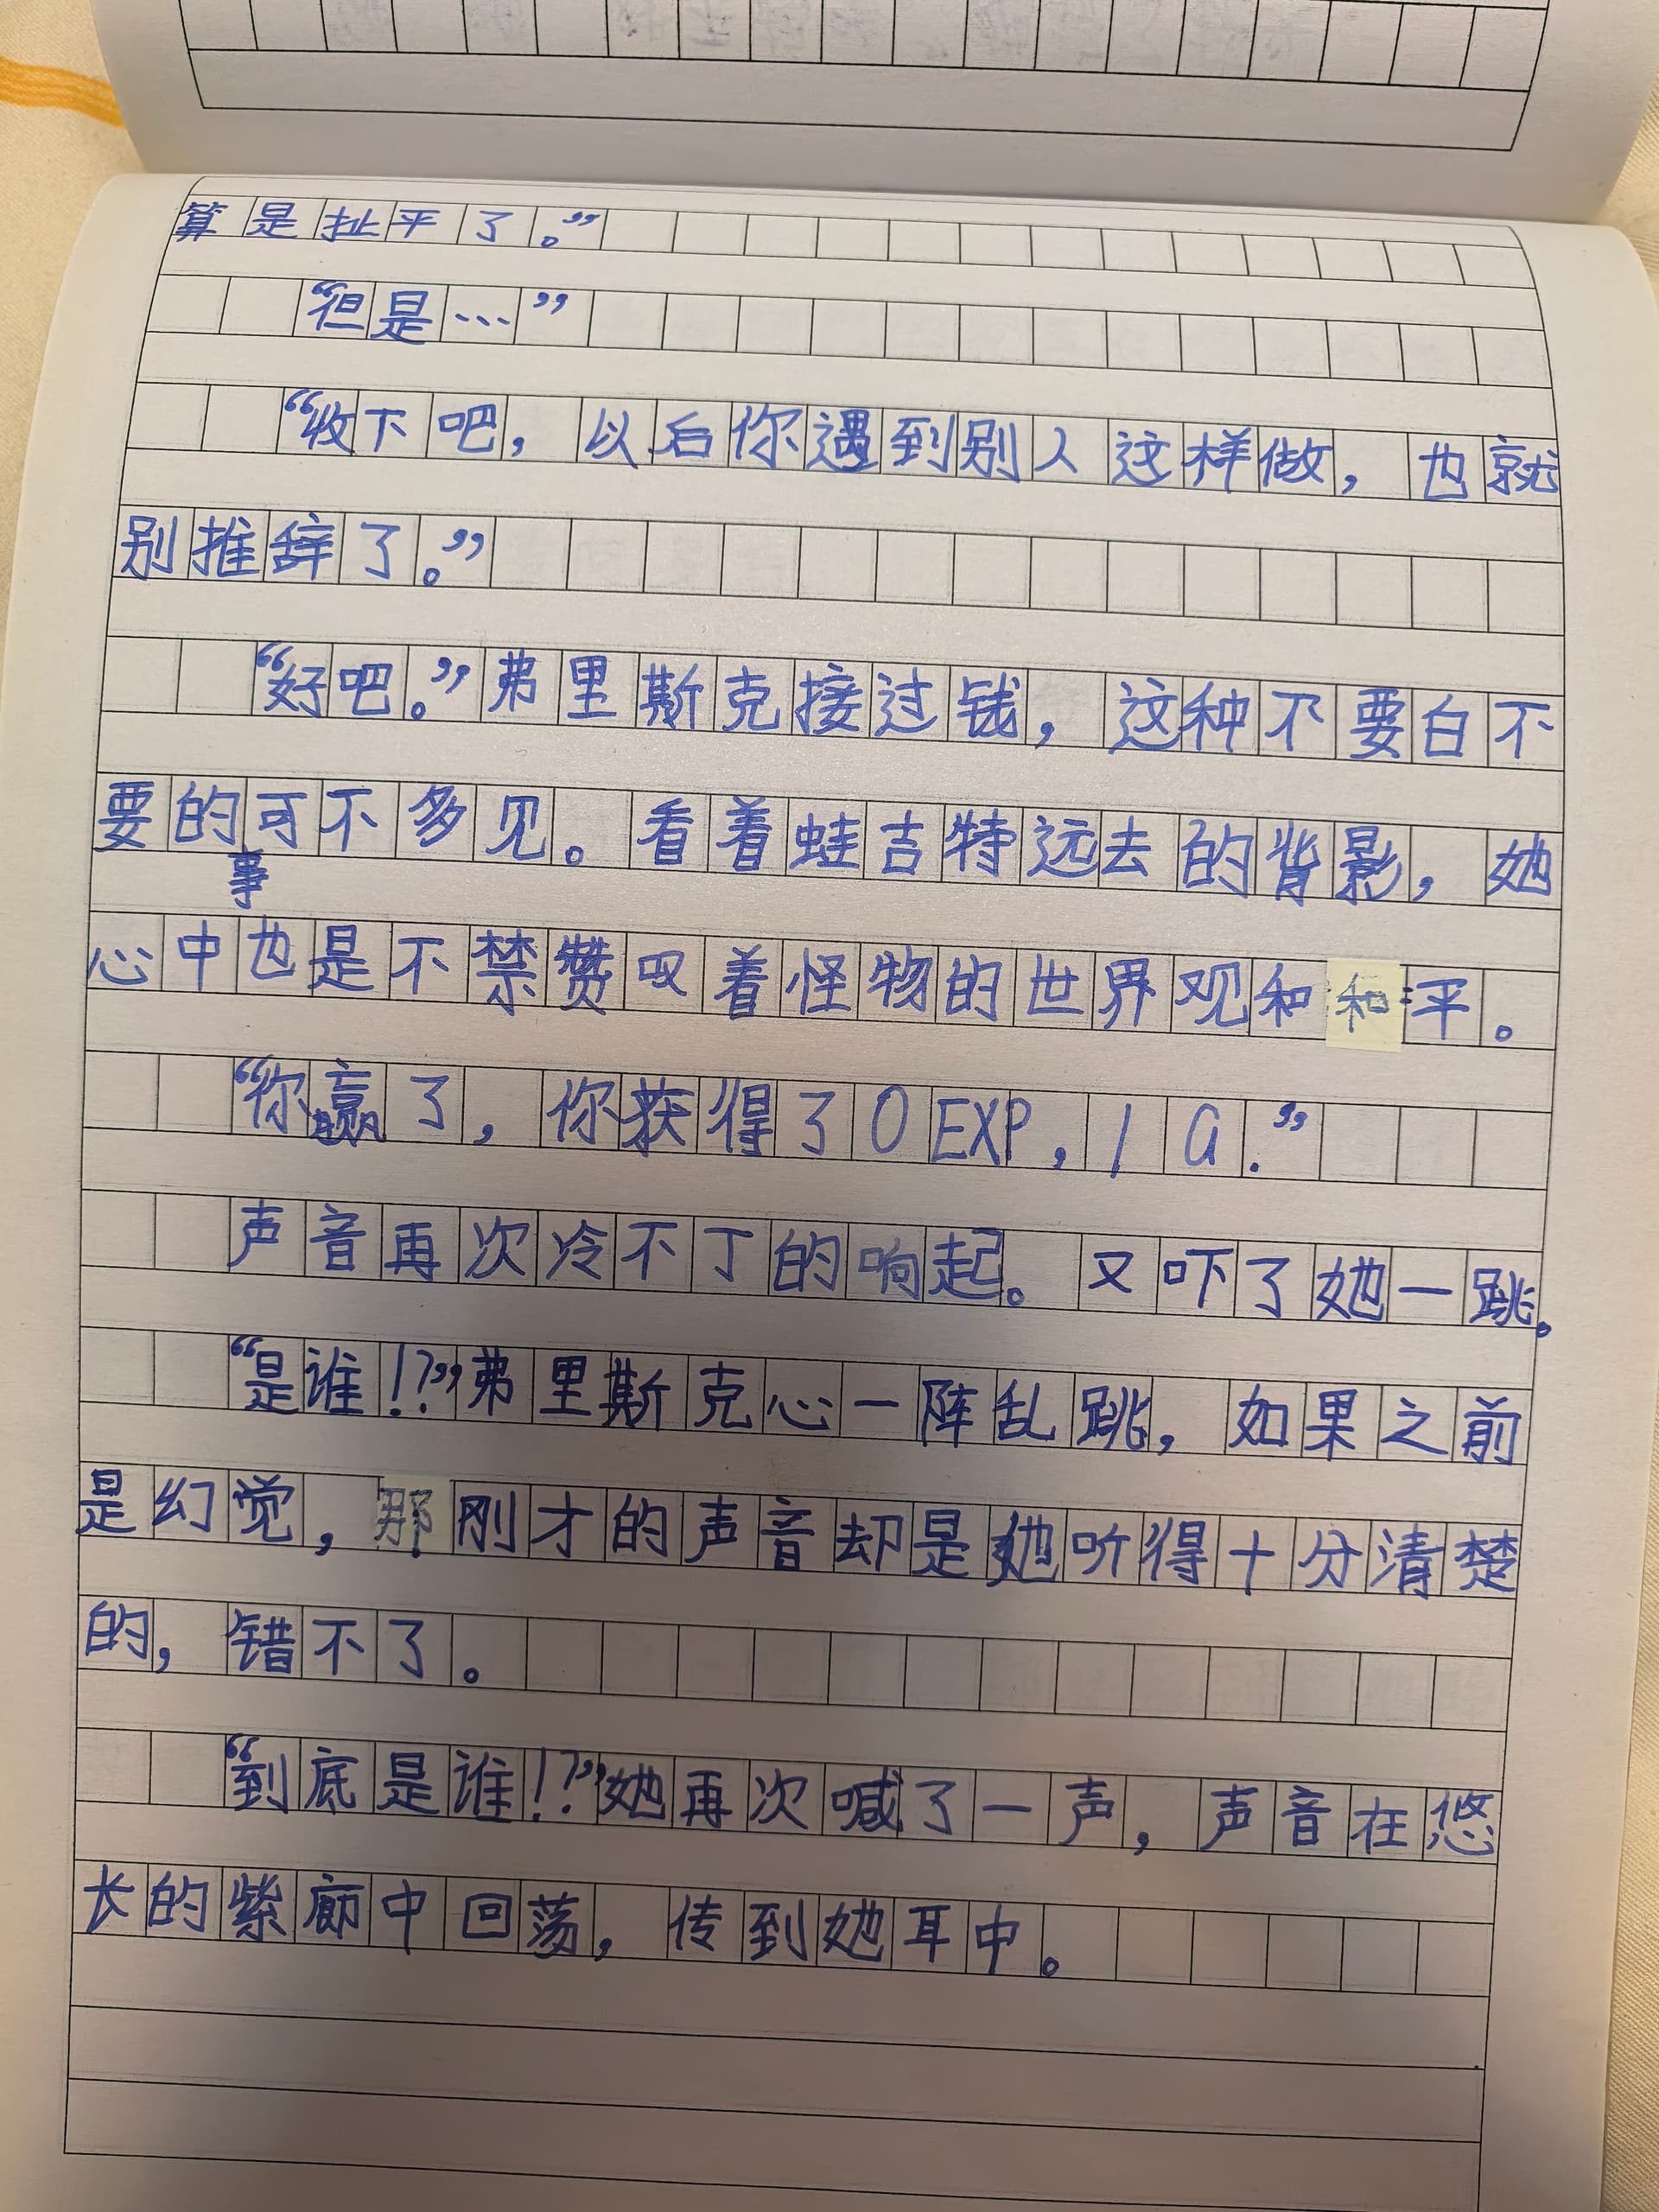 算是扯平了。”
“但是…”
“收下吧，以后你遇到别人这样做，也就
别推辞了。”
“好吧。”弗里斯克接过钱，这种不要白不
要的事可不多见。看着蛙吉特远去的背影，她
心中也是不禁赞叹着怪物的世界观和和平。
“你赢了，你获得了0EXP，1G.”
声音再次冷不丁的响起。又吓了她一跳。
“是谁!?”弗里斯克心一阵乱跳，如果之前
是幻觉，那刚才的声音却是她听得十分清楚
的，错不了。
“到底是谁!?”她再次喊了一声，声音在悠
长的紫廊中回荡，传到她耳中。